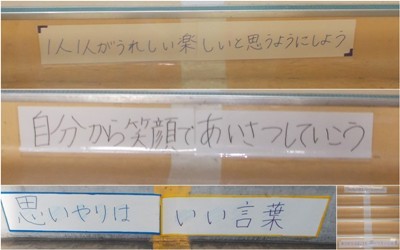 1人1人がうれしい楽しいと思うようにしよう
自分から笑顔であいさつしていこう
思いやりは いい言葉